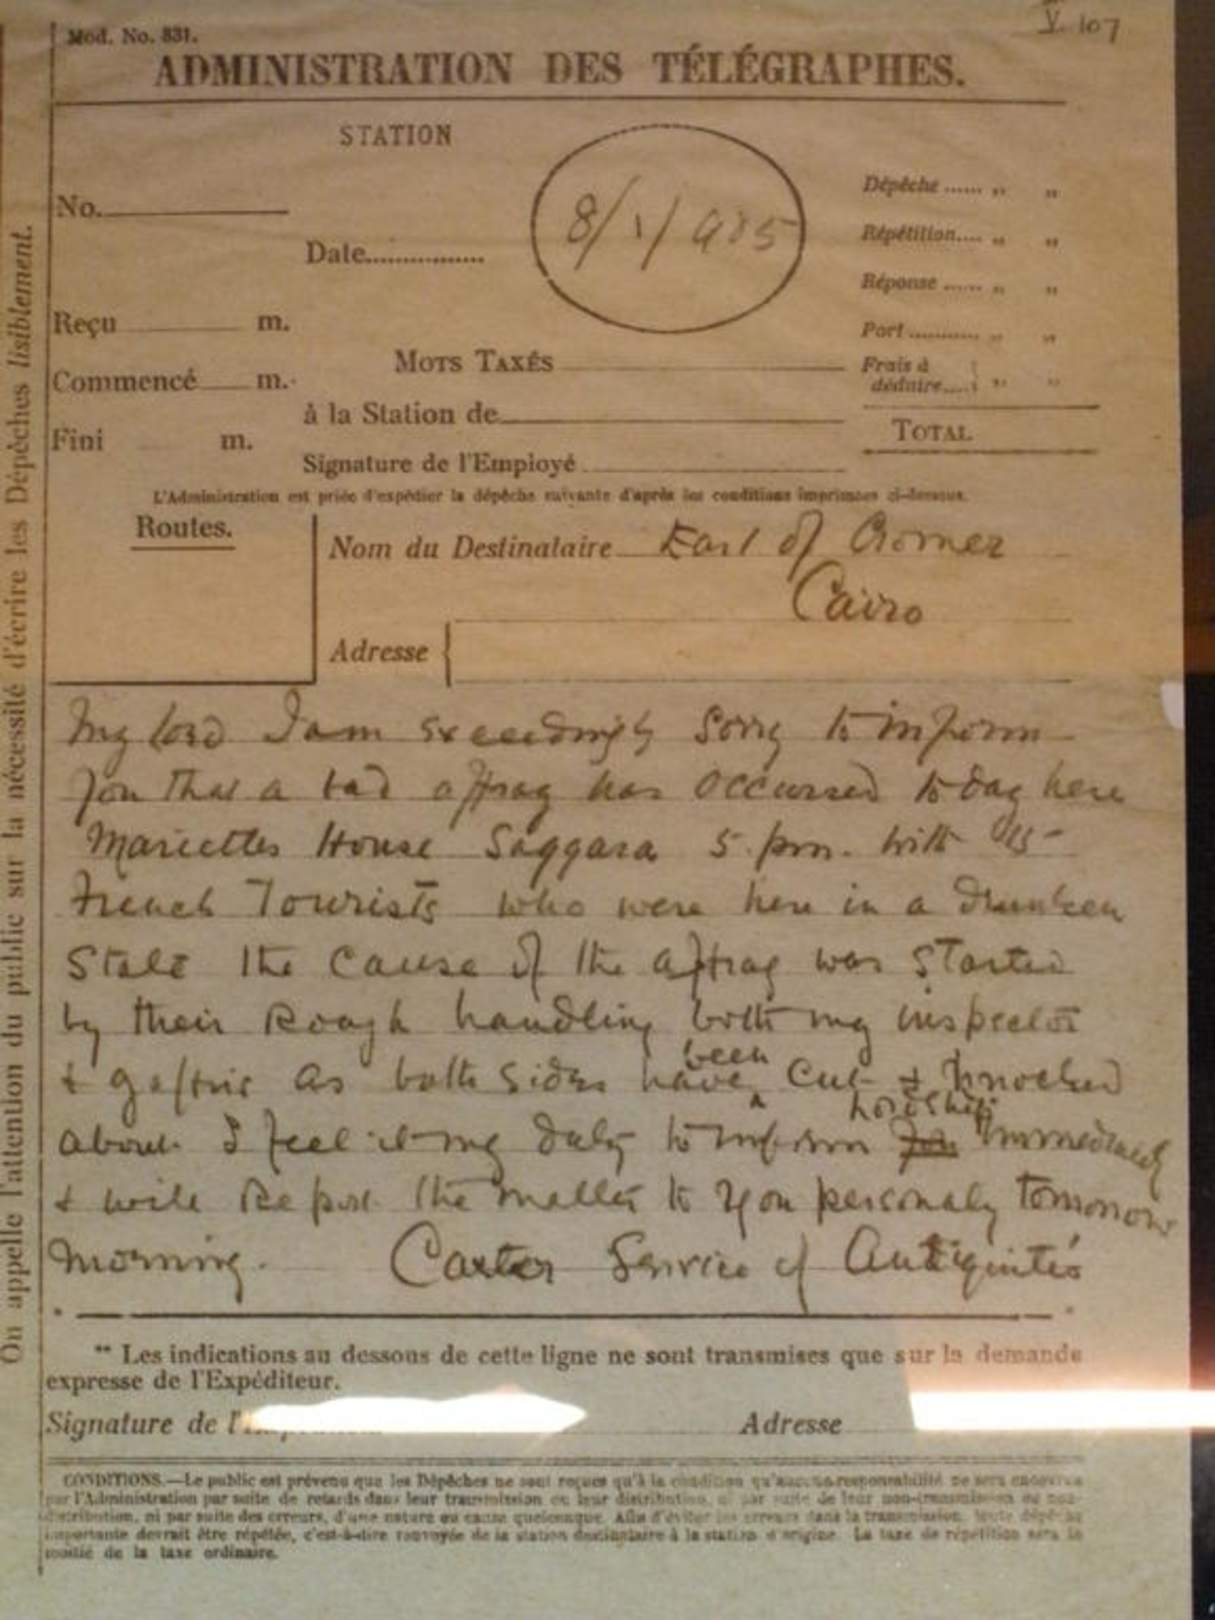 V. 107
Mod. No. 831.
ADMINISTRATION DES TÉLÉGRAPHES.
STATION
No.
Date...............
8/1/905
Dépêche ...... „ „
Répétition.... „ „
Réponse ...... „ „
Port ........... „ „
Frais à
déduire.....} „ „
TOTAL
Reçu m.
Commencé m.
Fini m.
MOTS TAXÉS
à la Station de
Signature de l'Employé
L'Administration est priée d'expédier la dépêche suivante d'après les conditions imprimées ci-dessous.
Routes.
Nom du Destinataire Earl of Cromer
Cairo
Adresse {
My Lord I am exceedingly sorry to inform
you that a bad affray has occurred to day here
Mariettes House Saggara 5. pm. with 15
French Tourists who were here in a drunken
state the cause of the affray was started
by their rough handling both my inspector
& gaffirs as both sides have been cut & knocked
about I feel it my duty to inform you Lordship immediately
& will report the matter to you personaly tomorrow
morning. Carter Service of Antiquités
** Les indications au dessous de cette ligne ne sont transmises que sur la demande
expresse de l'Expéditeur.
Signature de l'
Adresse
CONDITIONS.—Le public est prévenu que les Dépêches ne sont reçues qu'à la condition qu'aucune responsabilité ne sera encourue
par l'Administration par suite de retards dans leur transmission ou leur distribution, ni par suite de leur non-transmission ou non-
distribution, ni par suite des erreurs, d'une nature ou cause quelconque. Afin d'éviter les erreurs dans la transmission, toute dépêche
importante devrait être répétée, c'est-à-dire renvoyée de la station destinataire à la station d'origine. La taxe de répétition sera la
moitié de la taxe ordinaire.
On appelle l'attention du public sur la nécessité d'écrire les Dépêches lisiblement.